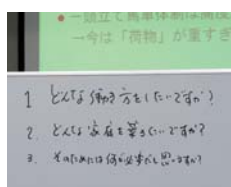 ●一頭立て馬車体制は限
→今は「荷物」が重すぎ
1 どんな働き方をしたいですか?
2. どんな家庭を築きたいですか?
3. そのためには何が必要だと思いますか?